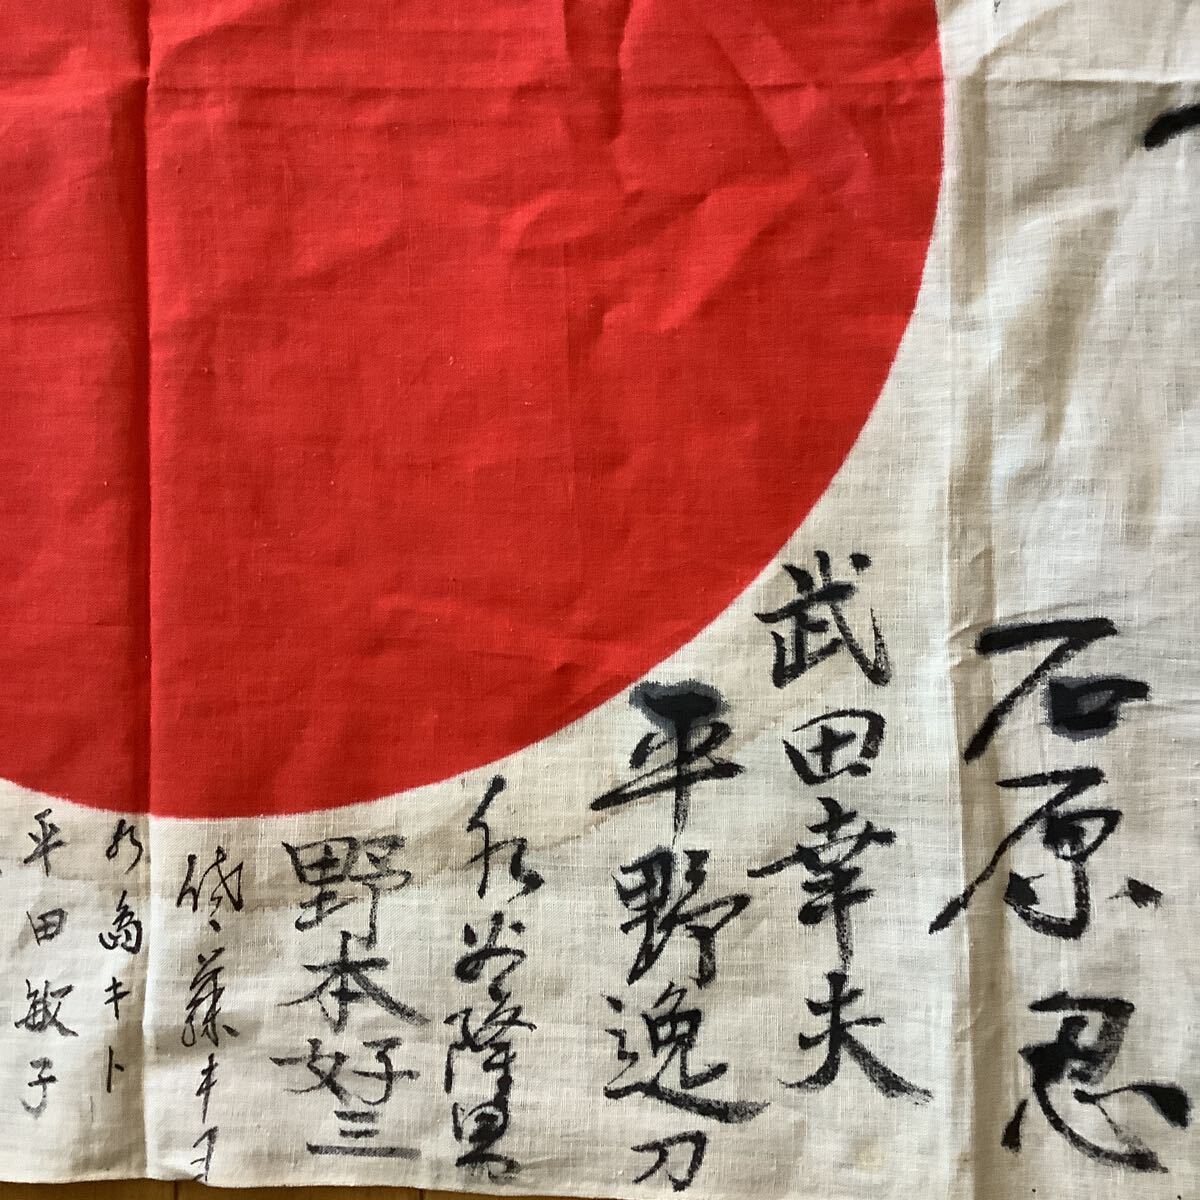 石原忍
武田幸夫
平野逸刀
永谷隆男
野本好三
キヨ
キト
平田敏子